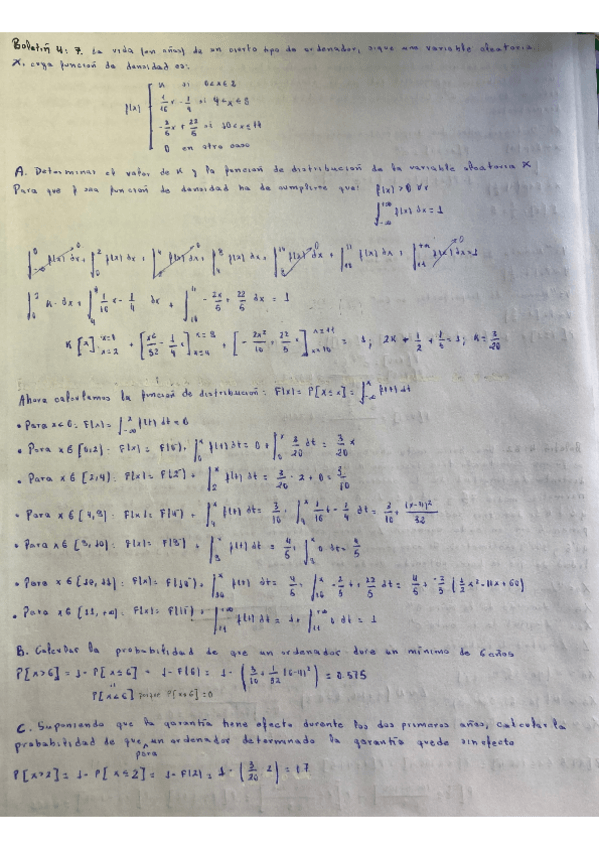 Boletín 4: 7. La vida (en años) de un cierto tipo de ordenador, sigue una variable aleatoria
X, cuya función de densidad es:
f(x) { K si 0<x≤2
1/16 x - 1/4 si 4<x≤8
-2/5 x + 22/5 si 10<x≤11
0 en otro caso
A. Determinar el valor de K y la función de distribución de la variable aleatoria X
Para que f sea función de densidad ha de cumplirse que: f(x) >0 ∀x
∫_{-∞}^{+∞} f(x) dx = 1
∫ f(x) dx + ∫_0^2 f(x) dx + ∫ f(x) dx + ∫ f(x) dx + ∫ f(x) dx + ∫ f(x) dx + ∫ f(x) dx = 1
∫_0^2 K · dx + ∫_4 1/16 x - 1/4 dx + ∫_10 - 2x/5 + 22/5 dx = 1
K [x] + [ - 1/4 x] + [- 2x²/10 + 22/5 x] = 1; 2K + 1/2 + 1/5 = 1; K = 3/20
Ahora calculamos la función de distribución: F(x) = P[X ≤ x] = ∫_{-∞}^x f(t) dt
• Para x<0: F(x) = ∫_{-∞}^x f(t) dt = 0
• Para x ∈ [0,2): F(x) = F(0⁻) + ∫_0^x f(t) dt = 0 + ∫_0^x 3/20 dt = 3/20 x
• Para x ∈ [2,4): F(x) = F(2⁻) + ∫_2^x f(t) dt = 3/20 · 2 + 0 = 3/10
• Para x ∈ [4,8): F(x) = F(4⁻) + ∫_4^x f(t) dt = 3/10 + ∫_4^x 1/16 t - 1/4 dt = 3/10 + (x-4)²/32
• Para x ∈ [8,10): F(x) = F(8⁻) + ∫_8^x f(t) dt = 4/5 + ∫_8^x 0 dt = 4/5
• Para x ∈ [10,11): F(x) = F(10⁻) + ∫_10^x f(t) dt = 4/5 + ∫_10^x - 2/5 t + 22/5 dt = 4/5 + -2/5 (1/2 x² - 11x + 60)
• Para x ∈ [11,+∞): F(x) = F(11⁻) + ∫_11^{+∞} f(t) dt = 1 + ∫_11^{+∞} 0 dt = 1
B. Calcular la probabilidad de que un ordenador dure un mínimo de 6 años
P[X>6] = 1 - P[X≤6] = 1 - F(6) = 1 - (3/10 + 1/32 (6-4)²) = 0.575
P[X<6] porque P[X=6]=0
C. Suponiendo que la garantía tiene efecto durante los dos primeros años, calcular la
probabilidad de que para un ordenador determinado la garantía quede sin efecto
P[X>2] = 1 - P[X≤2] = 1 - F(2) = 1 - (3/20 · 2) =